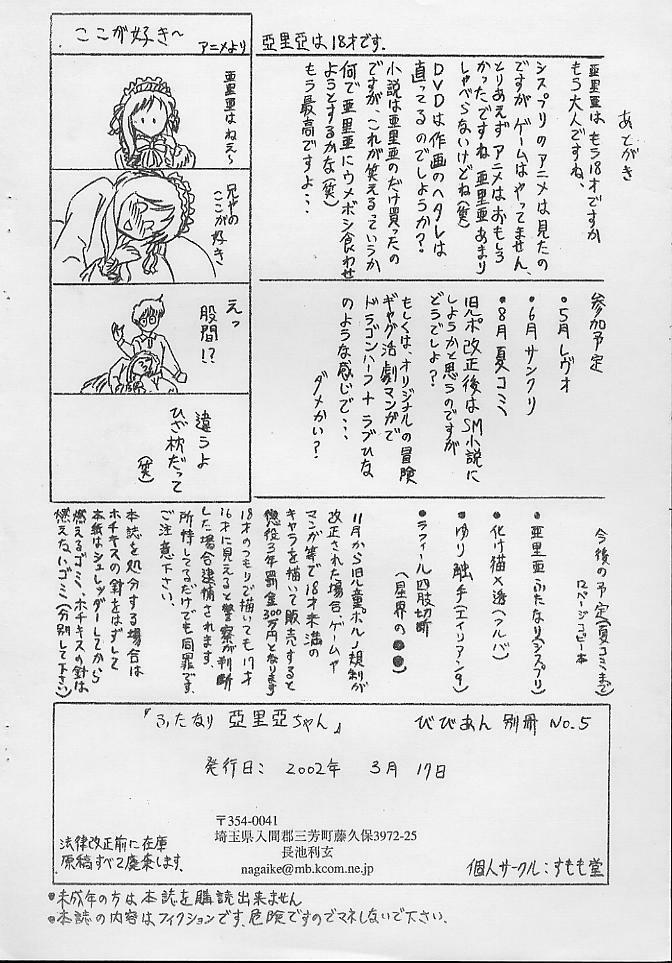 ここが好き～
アニメより
亜里亜はねぇ～
兄やの
ここが好き、
えっ
股間!?
違うよ
ひざ枕だって
(笑)
亜里亜は18才です.
あとがき
亜里亜は、もう18才ですか
もう大人ですね、
シスプリのアニメは見たの
ですが、ゲームはやってません、
とりあえずアニメはおもしろ
かったですね 亜里亜あまり
しゃべらないけどね(笑)
DVDは作画のヘタレは
直ってるのでしょうか?
小説は亜里亜のだけ買ったの
ですが、これが笑えるっていうか
何で亜里亜にウメボシ食わせ
ようとするかな(笑)
もう最高ですよ・・
参加予定
•5月レヴォ
•6月サンクリ
•8月夏コミ
児ポ改正後はSM小説に
しようかと思うのですが
どうでしょ?
もしくは、オリジナルの冒険
ギャグ活劇マンガで
ドラゴンハーフ+ラブひな
のような感じで・・・
ダメかい?
今後の予定(夏コミまで)
12ページコピー本
•亜里亜ふたなり(シスプリ)
•化け猫×透(フルバ)
•ゆり触手(エイリアン9)
•ラフィール四肢切断
(星界の●●)
11月から児童ポルノ規制が
改正された場合、ゲームや
マンガ等で18才未満の
キャラを描いて販売すると
懲役3年罰金300万円となります
18才のつもりで描いても17才
16才に見えると警察が判断
した場合逮捕されます.
所持してるだけでも同罪です、
ご注意下さい、
本誌を処分する場合は
ホチキスの針をはずして
本紙はシュレッダーしてから
燃えるゴミ、ホチキスの針は
燃えないゴミ(分別して下さい)
『ふたなり 亜里亜ちゃん』 びびあん 別冊 No.5
発行日: 2002年 3月 17日
〒354-0041
埼玉県入間郡三芳町藤久保3972-25
長池利玄
nagaike@mb.kcom.ne.jp
法律改正前に在庫
原稿すべて廃棄します.
個人サークル:すもも堂
•未成年の方は本誌を購読出来ません
•本誌の内容はフィクションです、危険ですのでマネしないで下さい.